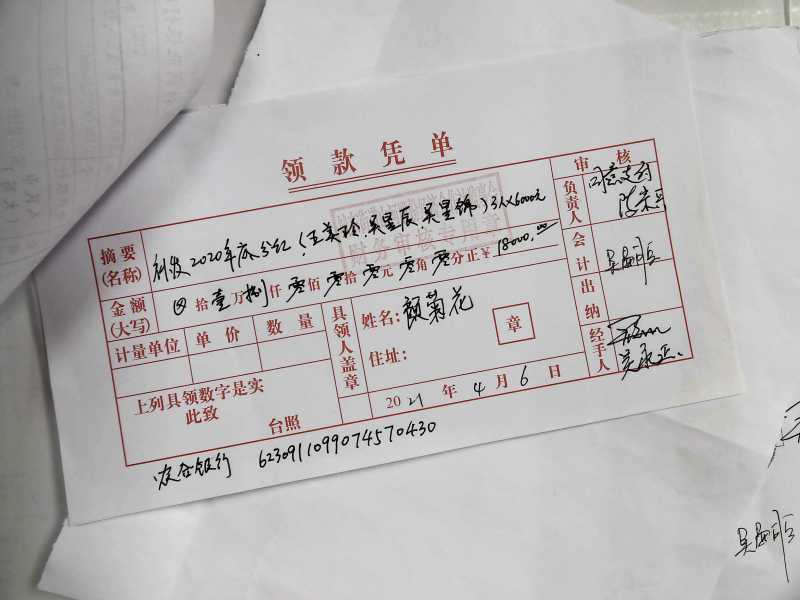 领款凭单
审核
摘要(名称) 补发2020年底分红(王美玲.吴星辰 吴星锦)3人X6000元
财务审核专用章
负责人 同意支付
金额(大写) ⊗拾壹万捌仟零佰零拾零元零角零分正¥18000.00
会计
计量单位 单价 数量
具领人盖章
姓名:颜菊花
章
出纳
住址:
经手人
上列具领数字是实
此致
台照
2021年4月6日
农合银行 6230911099074570430